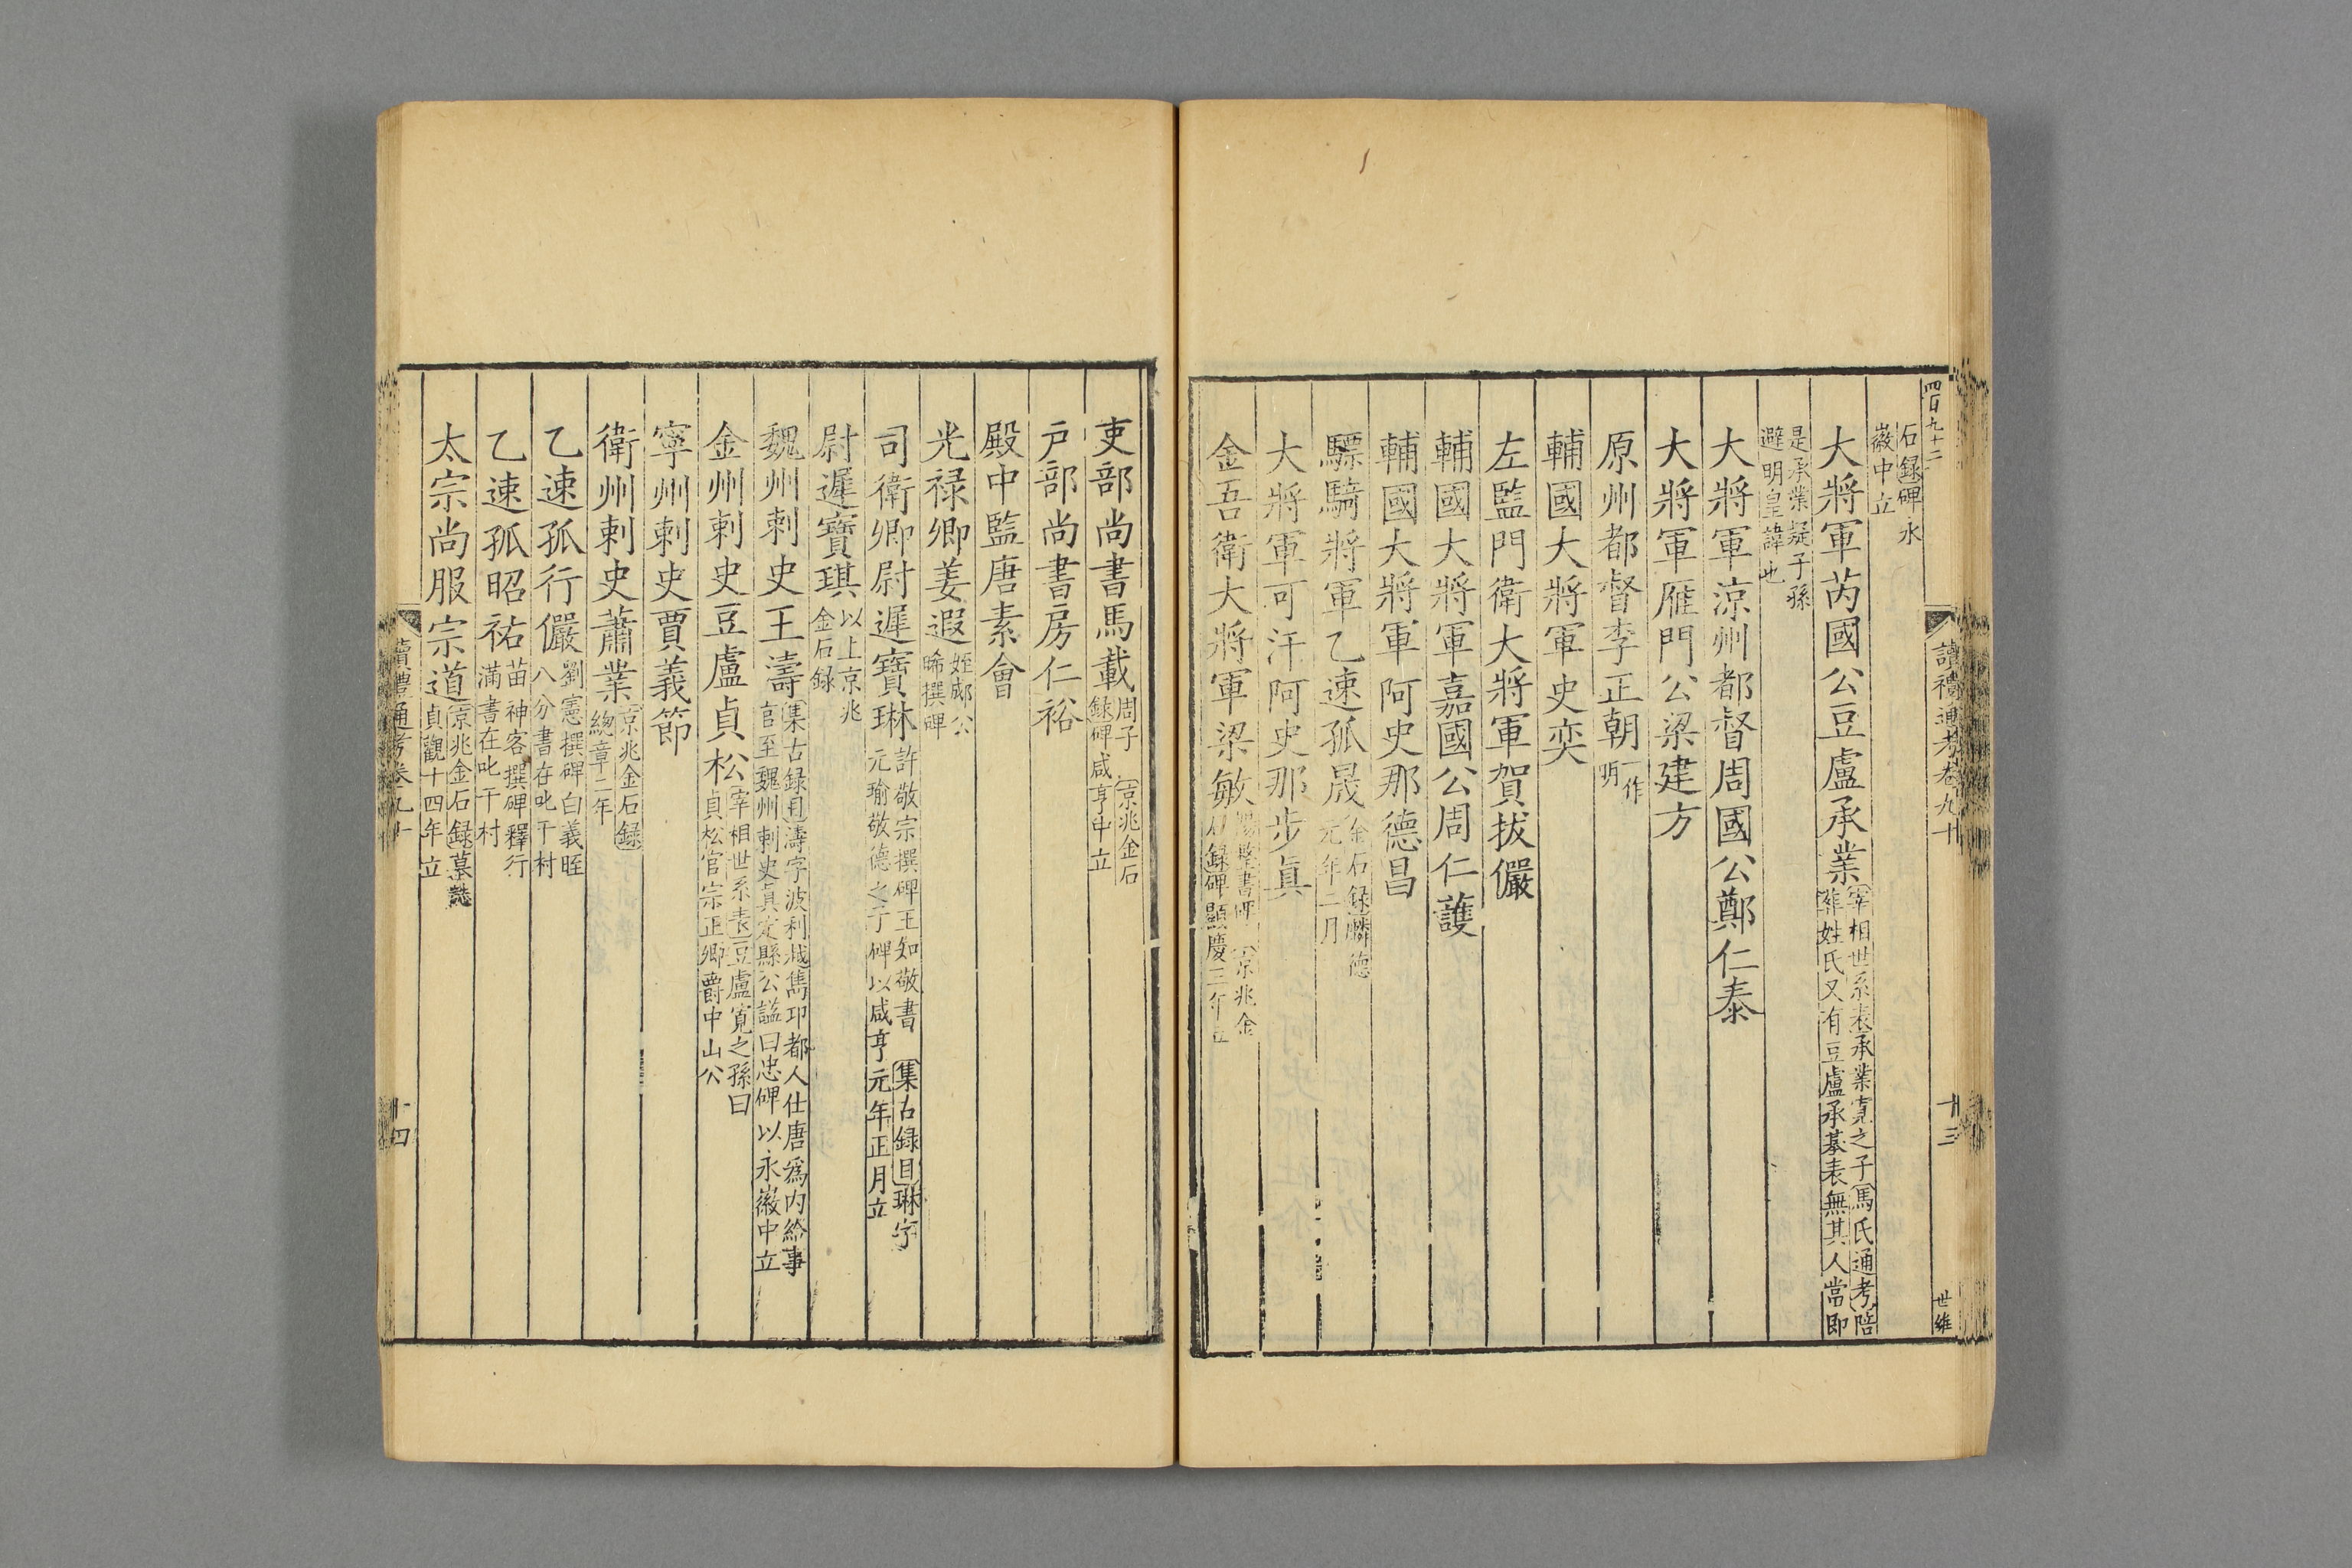 四百九十二
讀禮通考卷九十
十三
世維
石録碑永
徽中立
大將軍芮國公豆盧承業
宰相世系表承業寛之子馬氏通考陪
葬姓氏又有豆盧承基表無其人當即
是承業疑子孫
避明皇諱也
大將軍涼州都督周國公鄭仁泰
大將軍雁門公梁建方
原州都督李正朝
一作
明
輔國大將軍史奕
左監門衛大將軍賀拔儼
輔國大將軍嘉國公周仁護
輔國大將軍阿史那德昌
驃騎將軍乙速孤晟
金石録麟德
元年二月
大將軍可汗阿史那步真
金吾衛大將軍梁敏
書碑京兆金
石録碑顯慶三年立
吏部尚書馬載
周子 京兆金石
録碑咸亨中立
户部尚書房仁裕
殿中監唐素會
光禄卿姜遐
姪郕公
晞撰碑
司衛卿尉遲寶琳
許敬宗撰碑王知敬書 集古録目琳字
元瑜敬德之子碑以咸亨元年正月立
尉遲寶琪
以上京兆
金石録
魏州刺史王濤
集古録目濤字波利越雋邛都人仕唐爲内給事
官至魏州刺史真定縣公謚曰忠碑以永徽中立
金州刺史豆盧貞松
宰相世系表豆盧寛之孫曰
貞松官宗正卿爵中山公
寧州刺史賈義節
衛州刺史蕭業
京兆金石録
總章二年
乙速孤行儼
劉憲撰碑白義晊
八分書在叱干村
乙速孤昭祐
苗神客撰碑釋行
滿書在叱干村
太宗尚服宗道
京兆金石録墓誌
貞觀十四年立
讀禮通考卷九十
十四